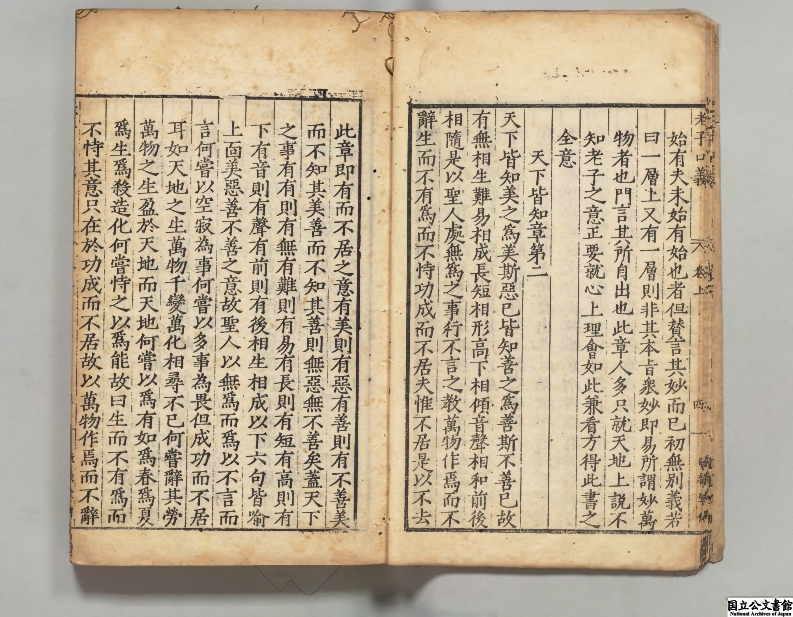 老子口義 卷上
始有夫未始有始也者但贊言其妙而已初無別義若
曰一層上又有一層則非其本旨衆妙即易所謂妙萬
物者也門言其所自出也此章人多只就天地上說不
知老子之意正要就心上理會如此兼看方得此書之
全意
天下皆知章第二
天下皆知美之爲美斯惡已皆知善之爲善斯不善已故
有無相生難易相成長短相形高下相傾音聲相和前後
相隨是以聖人處無爲之事行不言之教萬物作焉而不
辭生而不有爲而不恃功成而不居夫惟不居是以不去
此章即有而不居之意有美則有惡有善則有不善美
而不知其美善而不知其善則無惡無不善矣蓋天下
之事有有則有無有難則有易有長則有短有高則有
下有音則有聲有前則有後相生相成以下六句皆喻
上面美惡善不善之意故聖人以無爲而爲以不言而
言何嘗以空寂為事何嘗以多事為畏但成功而不居
耳如天地之生萬物千變萬化相尋不已何嘗辭其勞
萬物之生盈於天地而天地何嘗以爲有如爲春爲夏
爲生爲殺造化何嘗恃之以爲能故曰生而不有爲而
不恃其意只在於功成而不居故以萬物作焉而不辭
国立公文書館
National Archives of Japan